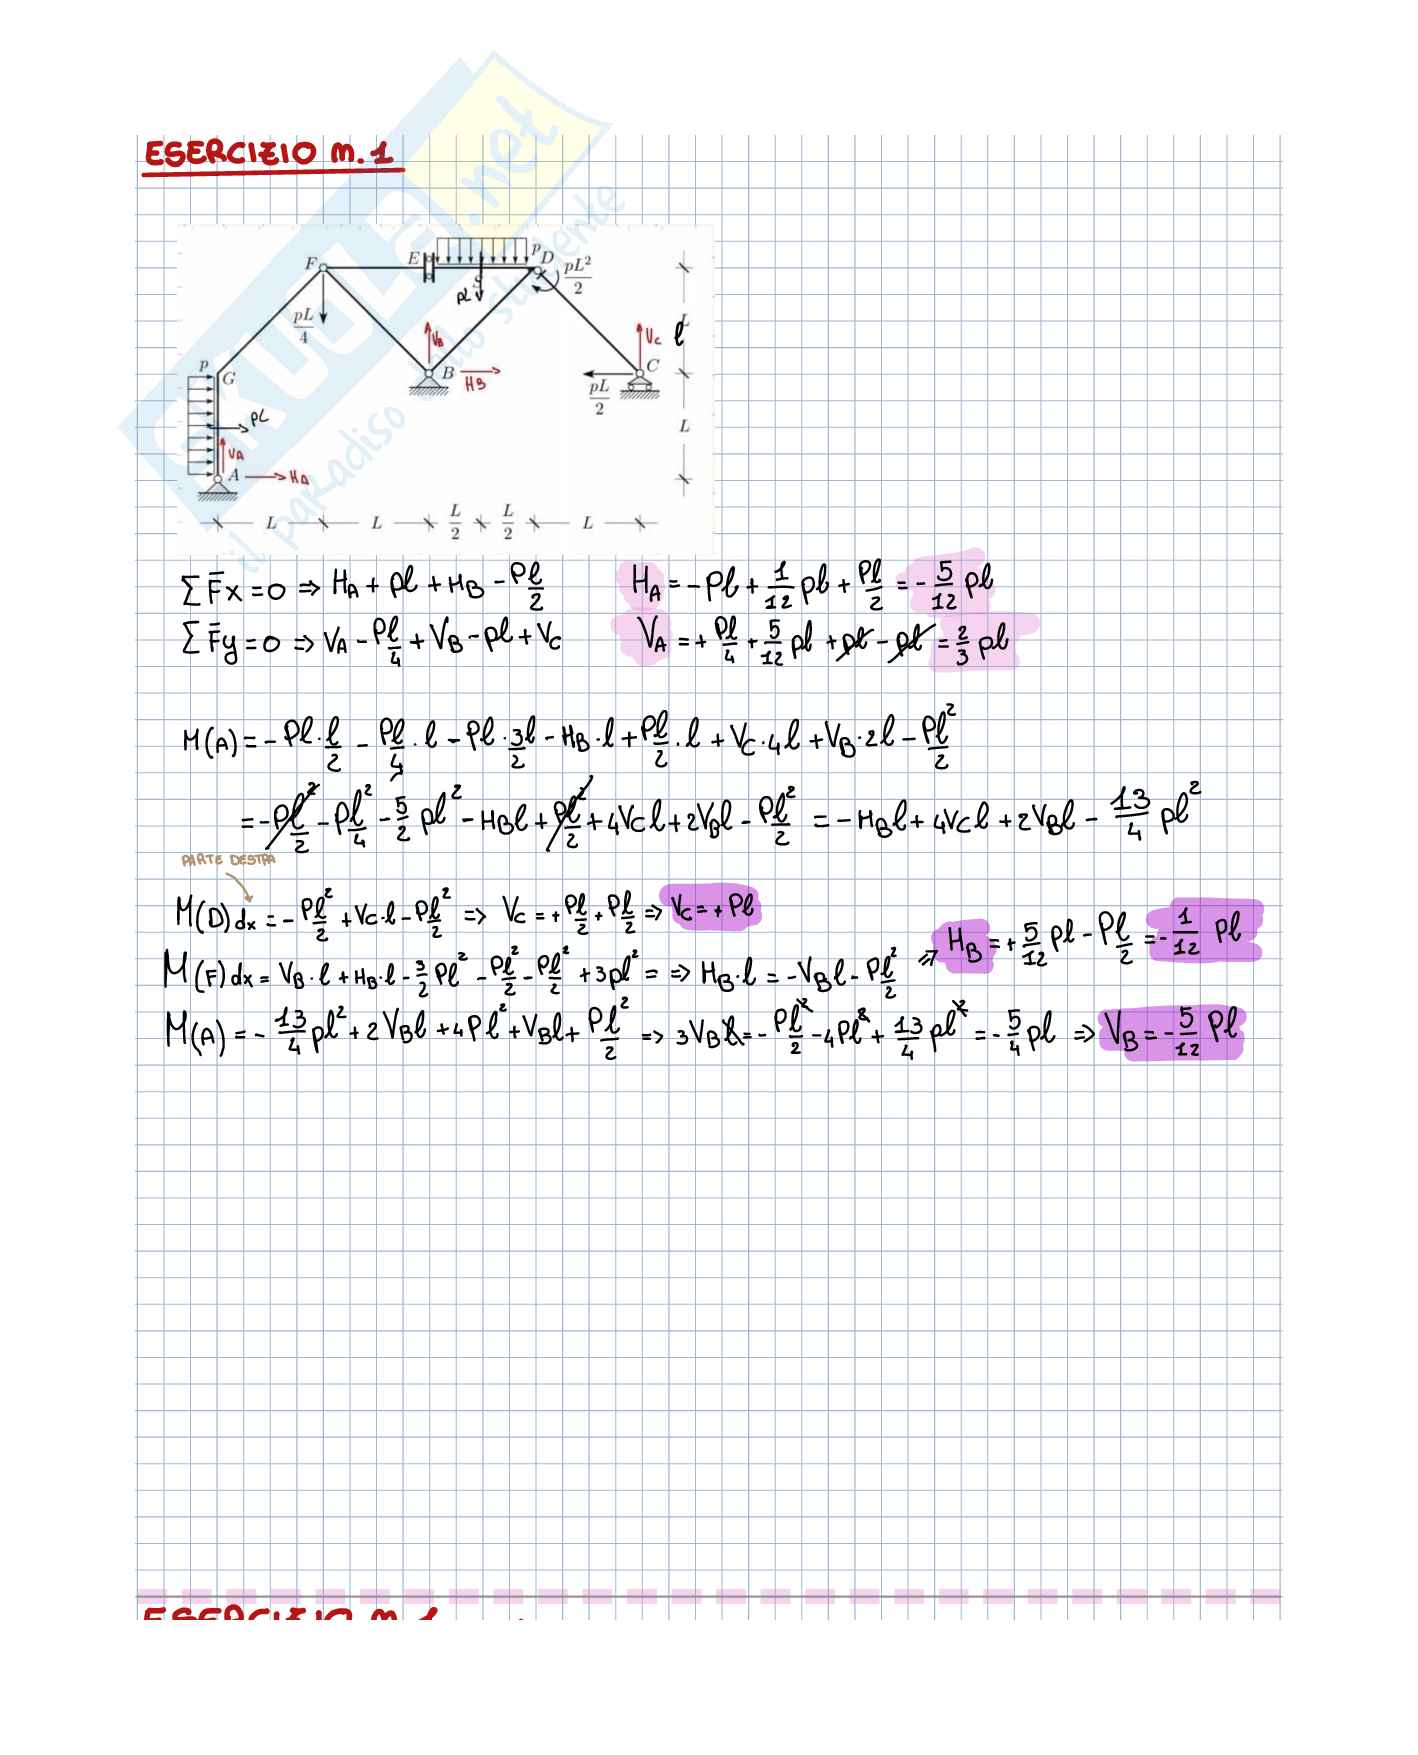 ESERCIZIO m.1
SKUOLA.net
il paradiso dello studente
F E p D pL²/2
pl
pL/4
V_B V_C l
p G B H_B C
pL/2
pl L
V_A
A H_A
L L L/2 L/2 L
ΣF̄x = 0 ⇒ H_A + pl + H_B - Pl/2 H_A = -Pl + 1/12 pl + Pl/2 = -5/12 pl
ΣF̄y = 0 ⇒ V_A - Pl/4 + V_B - pl + V_C V_A = + Pl/4 + 5/12 pl + pl - pl = 2/3 pl
M(A) = - Pl · l/2 - Pl/4 · l - Pl · 3/2 l - H_B · l + Pl/2 · l + V_C · 4l + V_B · 2l - Pl²/2
= - Pl²/2 - Pl²/4 - 5/2 pl² - H_B l + Pl²/2 + 4V_C l + 2V_B l - Pl²/2 = - H_B l + 4V_C l + 2V_B l - 13/4 pl²
PARTE DESTRA
M(D)dx = - Pl²/2 + V_C · l - Pl²/2 ⇒ V_C = + Pl/2 + Pl/2 ⇒ V_C = + Pl
M(F)dx = V_B · l + H_B · l - 3/2 Pl² - Pl²/2 - Pl²/2 + 3pl² = ⇒ H_B · l = - V_B l - Pl²/2 ⇒ H_B = + 5/12 Pl - Pl/2 = - 1/12 Pl
M(A) = - 13/4 pl² + 2V_B l + 4Pl² + V_B l + Pl²/2 ⇒ 3V_B l = - Pl²/2 - 4Pl² + 13/4 pl² = - 5/4 pl ⇒ V_B = - 5/12 Pl
ESERCIZIO m.1